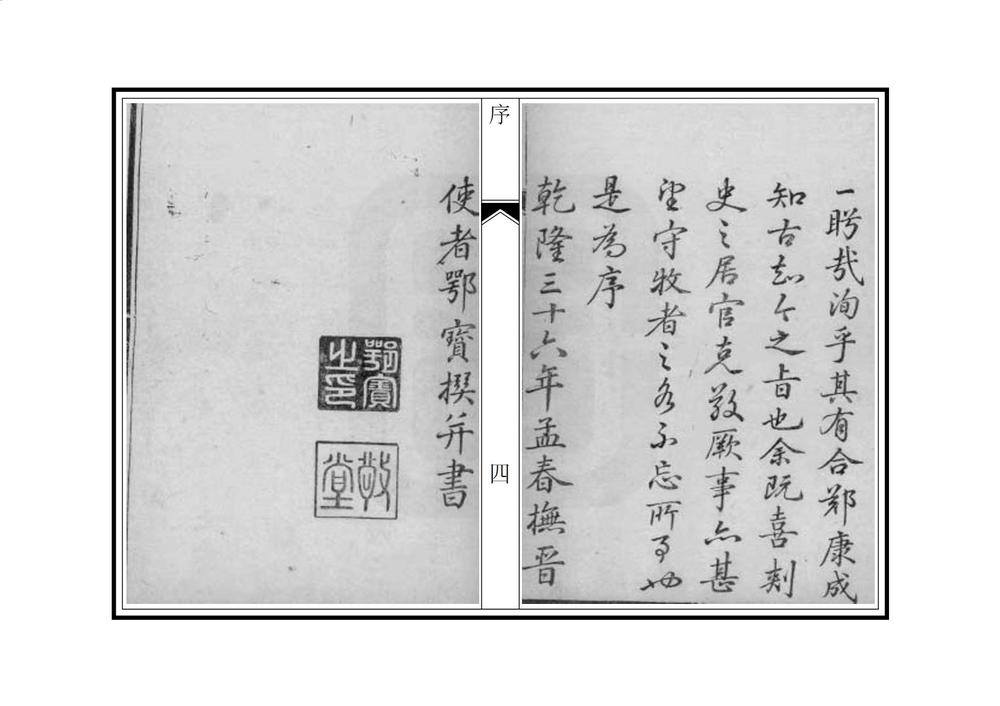 一眄哉洵乎其有合鄭康成
知古知今之旨也余既喜刺
史之居官克敬厥事亦甚
望守牧者之各不忘所事也
是為序
乾隆三十六年孟春撫晉
序
四
使者鄂寶撰并書
鄂寶之印
敬堂